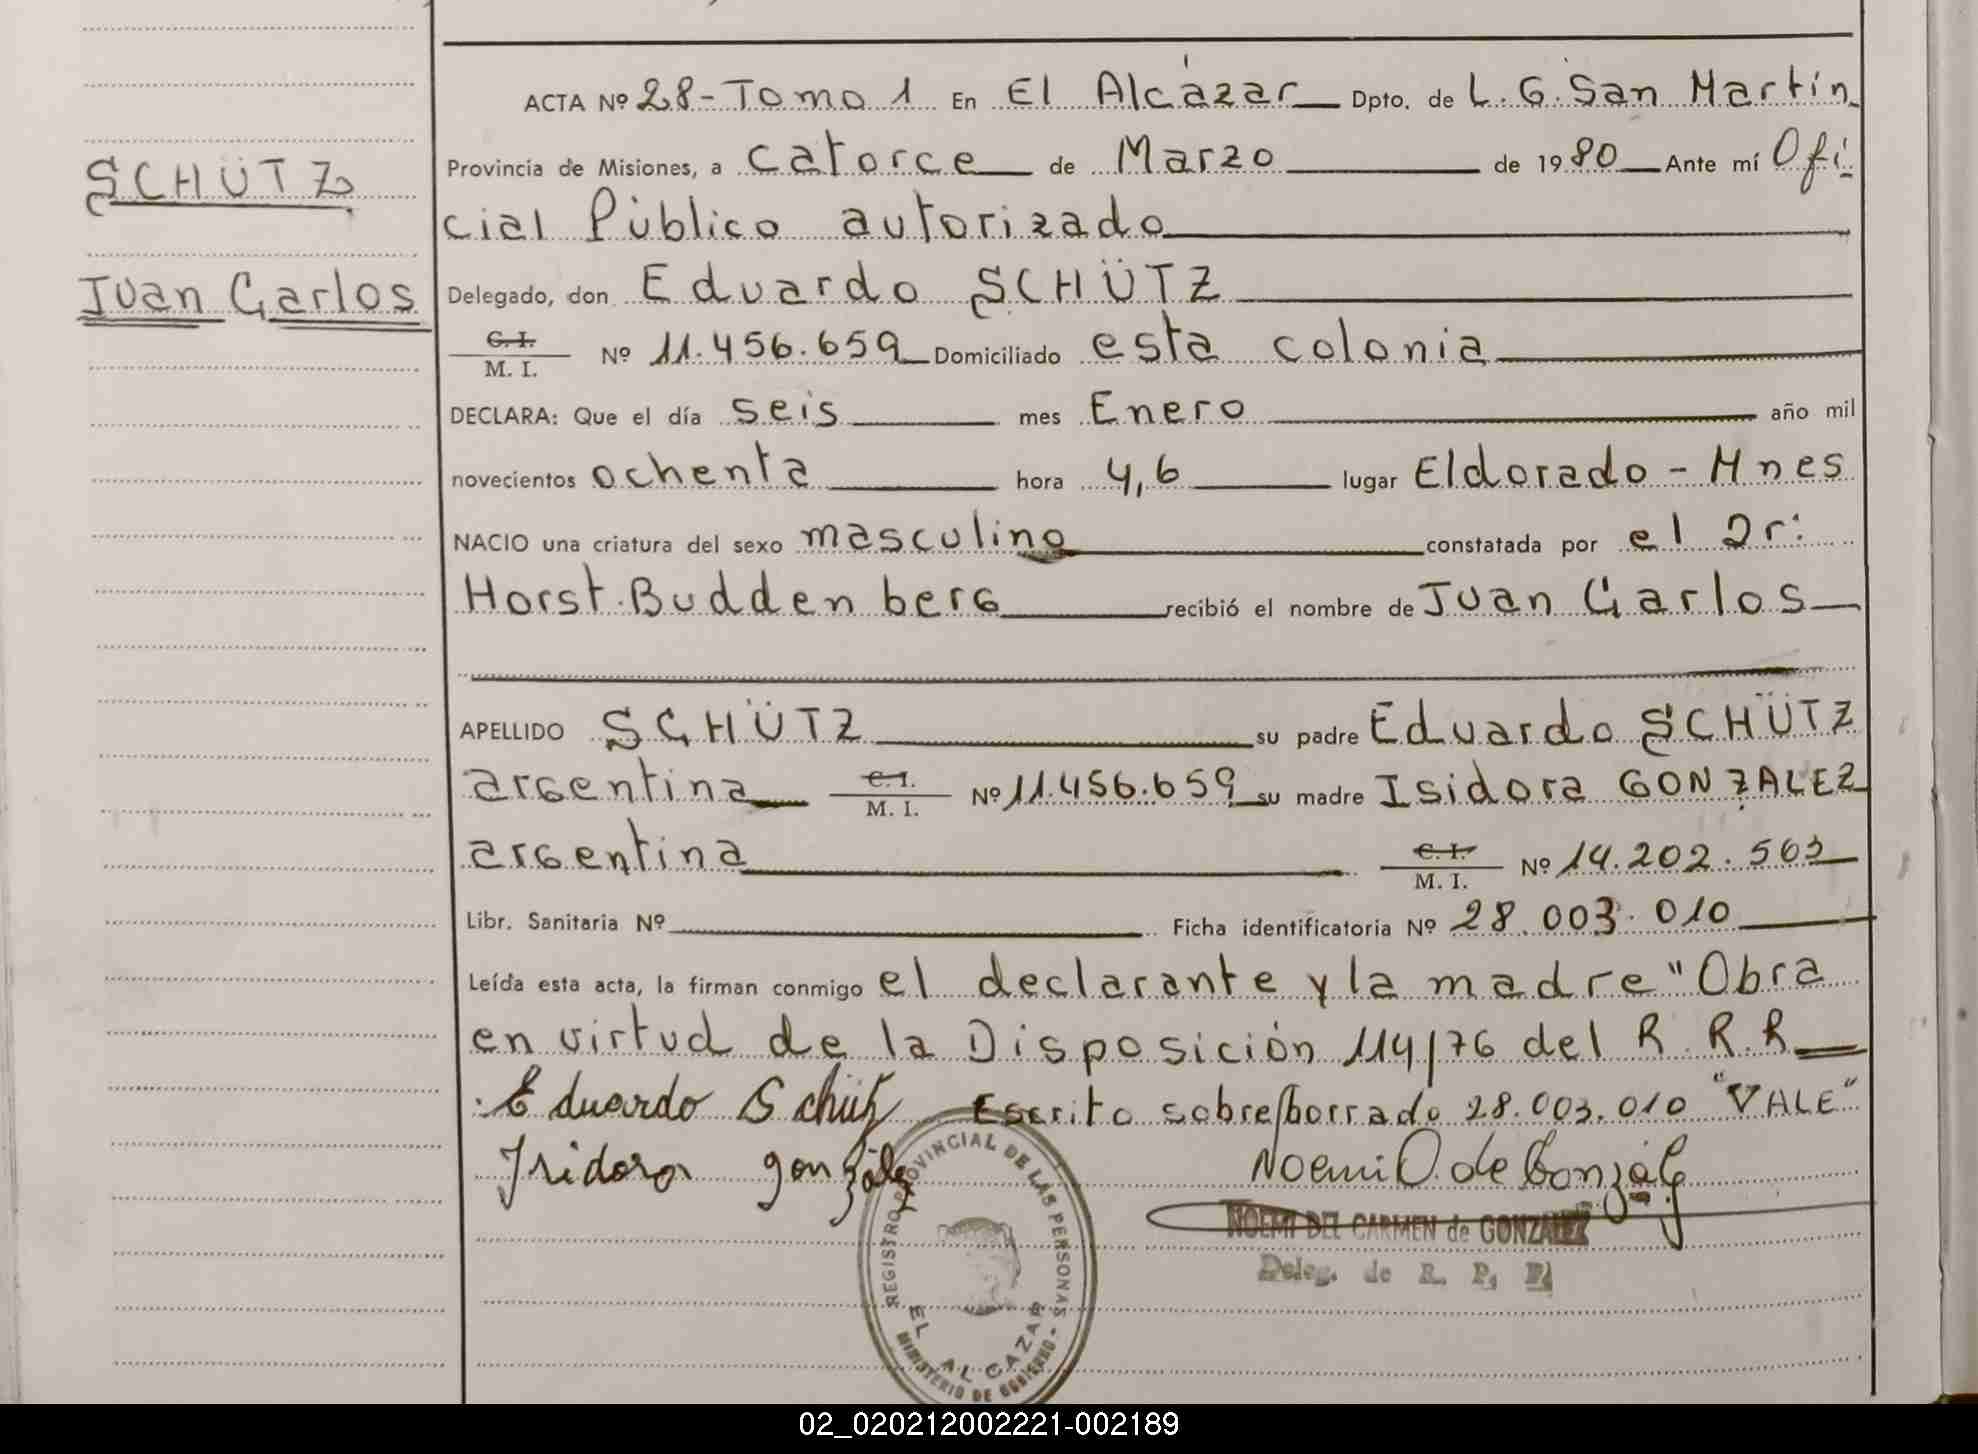 ACTA Nº 28-Tomo 1 En El Alcázar Dpto. de L.G.San Martín
Provincia de Misiones, a catorce de Marzo de 1980 Ante mí Ofi
SCHÜTZ
cial Público autorizado
Juan Carlos
Delegado, don Eduardo SCHÜTZ
C. I.
M. I. Nº 11.456.659 Domiciliado esta colonia
DECLARA: Que el día seis mes Enero año mil
novecientos ochenta hora 4,6 lugar Eldorado - Mnes
NACIO una criatura del sexo masculino constatada por el Dr:
Horst Buddenberg recibió el nombre de Juan Carlos
APELLIDO SCHÜTZ su padre Eduardo SCHÜTZ
argentina C. I. M. I. Nº 11.456.659 su madre Isidora GONZALEZ
argentina C. I. M. I. Nº 14.202.503
Libr. Sanitaria Nº Ficha identificatoria Nº 28.003.010
Leída esta acta, la firman conmigo el declarante y la madre "Obra
en virtud de la Disposición 114/76 del R.R.R
Eduardo Schütz Escrito sobre/borrado 28.003.010 "VALE"
Isidora gonzález Noemi D. de Gonzalez
NOEMI DEL CARMEN de GONZALEZ
Deleg. de R. P. P.
REGISTRO PROVINCIAL DE LAS PERSONAS
EL ALCAZAR
MINISTERIO DE GOBIERNO
02_020212002221-002189